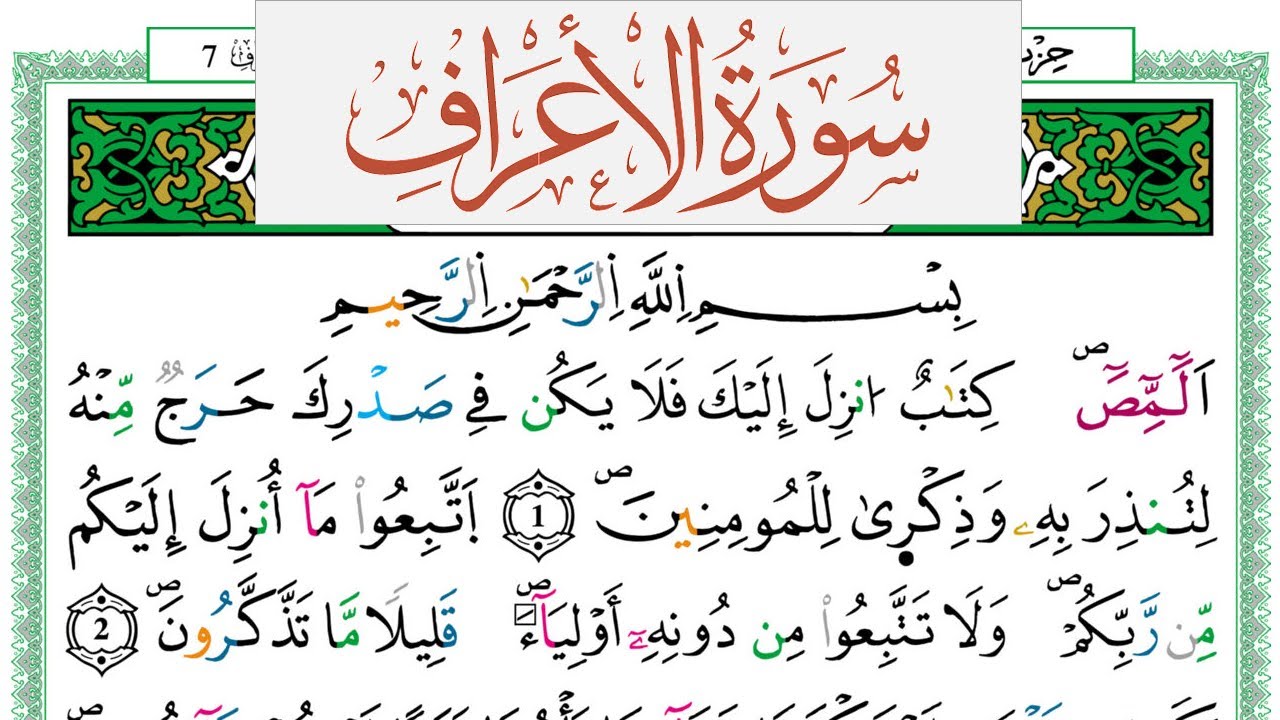 حِزْب 7
سُورَةُ الْأَعْرَافِ
بِسْمِ اِللَّهِ اِلرَّحْمَٰنِ اِلرَّحِيمِ
اَلَٓمِّٓصَٓ كِتَٰبٌ اُنزِلَ إِلَيْكَ فَلَا يَكُن فِے صَدْرِكَ حَرَجٌ مِّنْهُ
لِتُنذِرَ بِهِۦ وَذِكْر۪ىٰ لِلْمُومِنِينَ 1 اَتَّبِعُواْ مَآ أُنزِلَ إِلَيْكُم
مِّن رَّبِّكُمْ وَلَا تَتَّبِعُواْ مِن دُونِهِۦٓ أَوْلِيَآءَ قَلِيلًا مَّا تَذَّكَّرُونَ 2